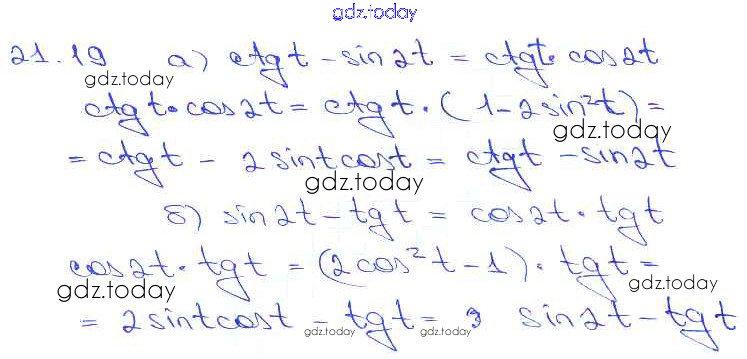 gdz.today
21.19 а) ctg t - sin 2t = ctg t · cos 2t
gdz.today
ctg t · cos 2t = ctg t · (1 - 2 sin²t) =
gdz.today
= ctg t - 2 sin t cos t = ctg t - sin 2t
gdz.today
б) sin 2t - tg t = cos 2t · tg t
cos 2t · tg t = (2 cos²t - 1) · tg t =
gdz.today gdz.today
= 2 sin t cos t - tg t = sin 2t - tg t
gdz.today gdz.today